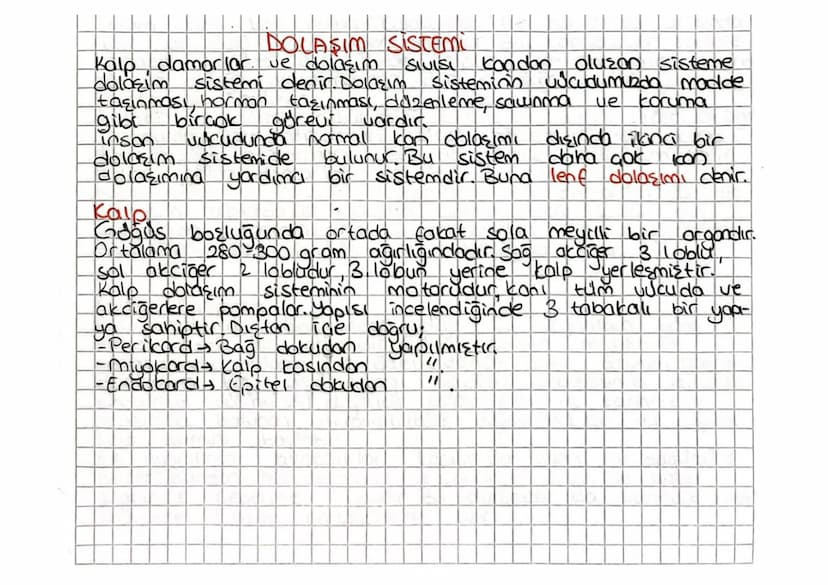 DOLAŞIM SİSTEMİ
Kalp, damarlar ve dolaşım sıvısı kandan oluşan sisteme
dolaşım sistemi denir. Dolaşım sisteminin vücudumuzda madde
taşınması, hormon taşınması, düzenleme, savunma ve koruma
gibi birçok görevi vardır.
İnsan vücudunda normal kan dolaşımı dışında ikinci bir
dolaşım sistemide bulunur. Bu sistem daha çok kan
dolaşımına yardımcı bir sistemdir. Buna lenf dolaşımı denir.
Kalp
Göğüs boşluğunda ortada fakat sola meyilli bir organdır.
Ortalama 280-300 gram ağırlığındadır. Sağ akciğer 3 loblu,
sol akciğer 2 lobludur, 3. lobun yerine kalp yerleşmiştir.
Kalp dolaşım sisteminin motorudur, kanı tüm vücuda ve
akciğerlere pompalar. Yapısı incelendiğinde 3 tabakalı bir yapı-
ya sahiptir. Dıştan içe doğru;
-Perikard → Bağ dokudan yapılmıştır.
-Miyokard → Kalp kasından ".
-Endokard → Epitel dokudan ".